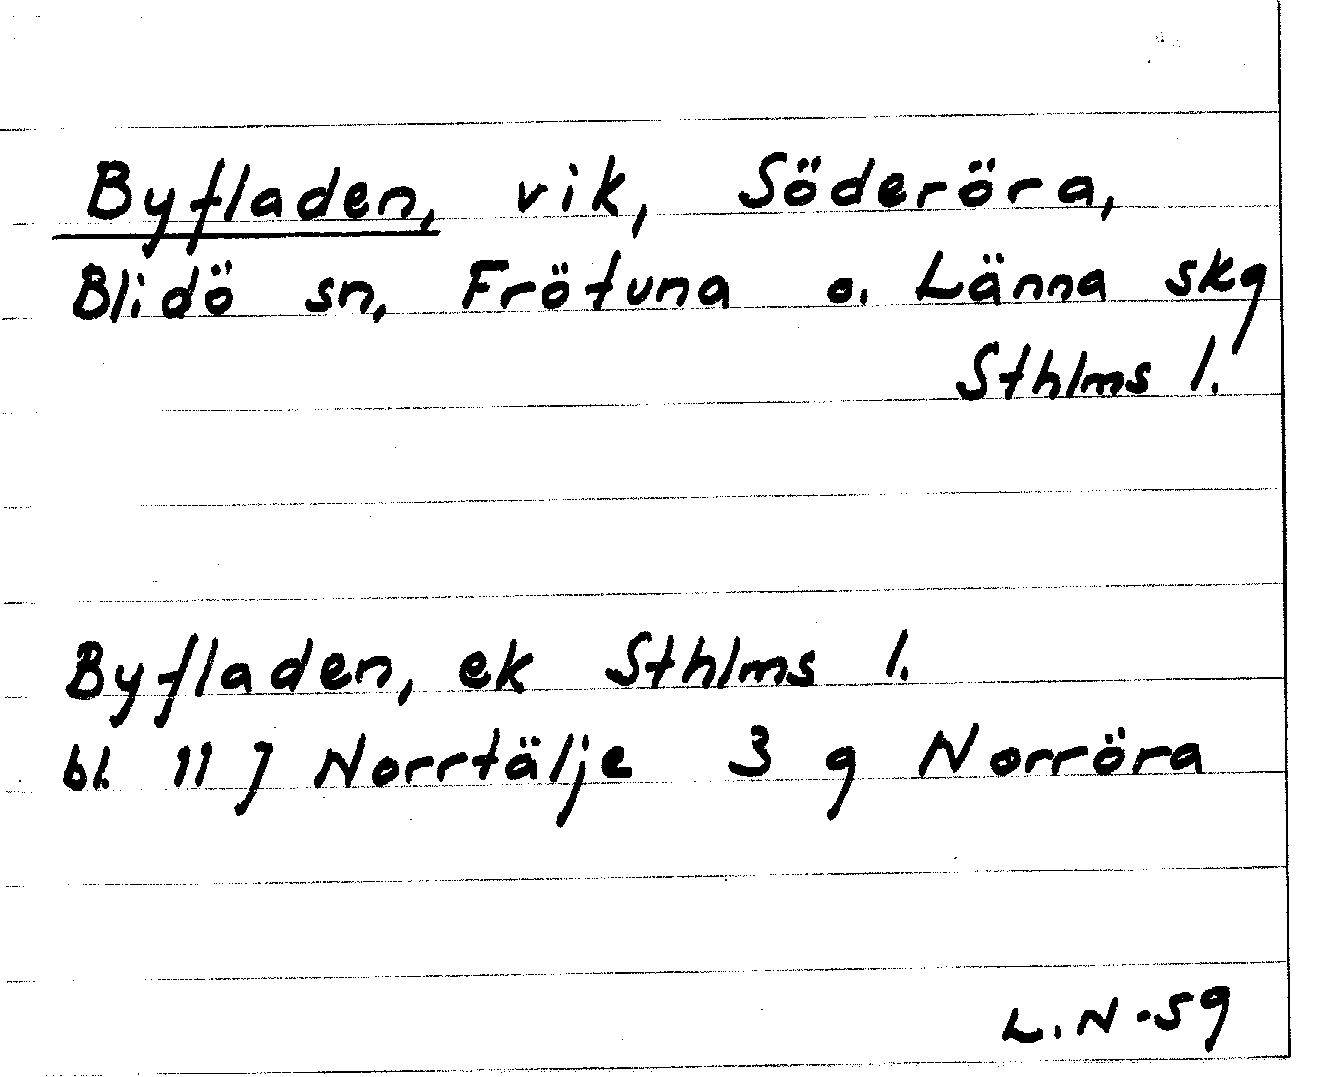 Byfladen, vik, Söderöra,
Blidö sn, Frötuna o. Länna skg
Sthlms l.
Byfladen, ek Sthlms l.
bl. 11 J Norrtälje 3 g Norröra
L.N-59